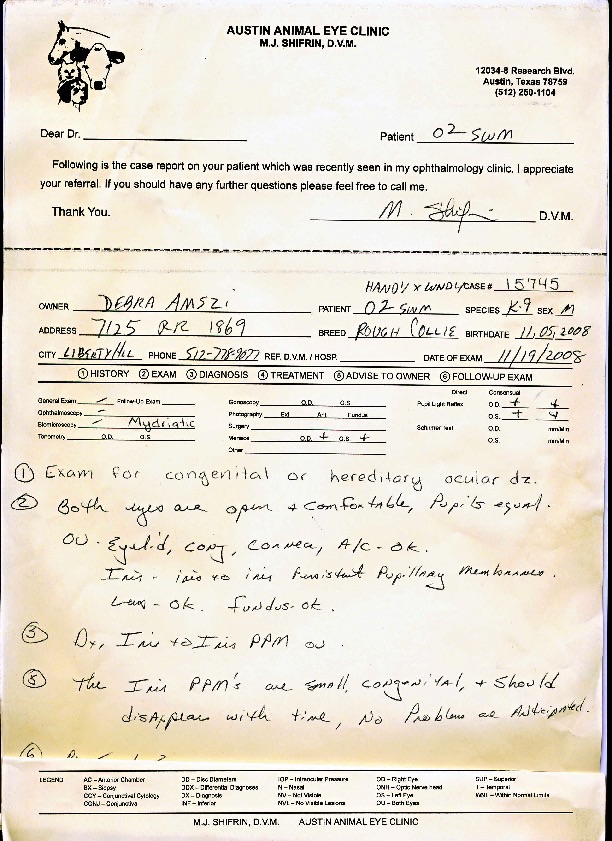 AUSTIN ANIMAL EYE CLINIC
M.J. SHIFRIN, D.V.M.
12034-8 Research Blvd.
Austin, Texas 78759
(512) 250-1104
Dear Dr. Patient 02 SWM
Following is the case report on your patient which was recently seen in my ophthalmology clinic. I appreciate
your referral. If you should have any further questions please feel free to call me.
Thank You. M. Shifrin D.V.M.
CASE# 15745
OWNER DEBRA AMSZI PATIENT 02 SWM SPECIES K-9 SEX M
ADDRESS 7125 RR 1869 BREED ROUGH COLLIE BIRTHDATE 11,05,2008
CITY LIBERTY HILL PHONE 512-778-9077 REF. D.V.M. / HOSP. DATE OF EXAM 11/19/2008
① HISTORY ② EXAM ③ DIAGNOSIS ④ TREATMENT ⑤ ADVISE TO OWNER ⑥ FOLLOW-UP EXAM
Direct Consensual
General Exam Follow-Up Exam Gonioscopy O.D. O.S. Pupil Light Reflex O.D. + +
Ophthalmoscopy Photography Ext Ant Fundus O.S. + +
Biomicroscopy Mydriatic Surgery Schirmer Test O.D. mm/Min
Tonometry O.D. O.S. Menace O.D. + O.S. + O.S. mm/Min
Other
① Exam for congenital or hereditary ocular dz.
② Both eyes are open + comfortable, Pupils equal.
OU - Eyelid, conj, cornea, A/C - OK.
Iris - iris to iris Persistent Pupillary Membranes.
Lens - OK. fundus - OK.
③ Dx, Iris to Iris PPM OU.
⑤ The Iris PPM's are small, congenital, + should
disappear with time, No Problems are Anticipated.
⑥
LEGEND AC – Anterior Chamber DD – Disc Diameters IOP – Intraocular Pressure OD – Right Eye SUP – Superior
BX – Biopsy DDX – Differential Diagnoses N – Nasal ONH – Optic Nerve head T – Temporal
CCY – Conjunctival Cytology DX – Diagnosis NV – Not Visible OS – Left Eye WNL – Within Normal Limits
CONJ – Conjunctiva INF – Inferior NVL – No Visible Lesions OU – Both Eyes
M.J. SHIFRIN, D.V.M. AUSTIN ANIMAL EYE CLINIC